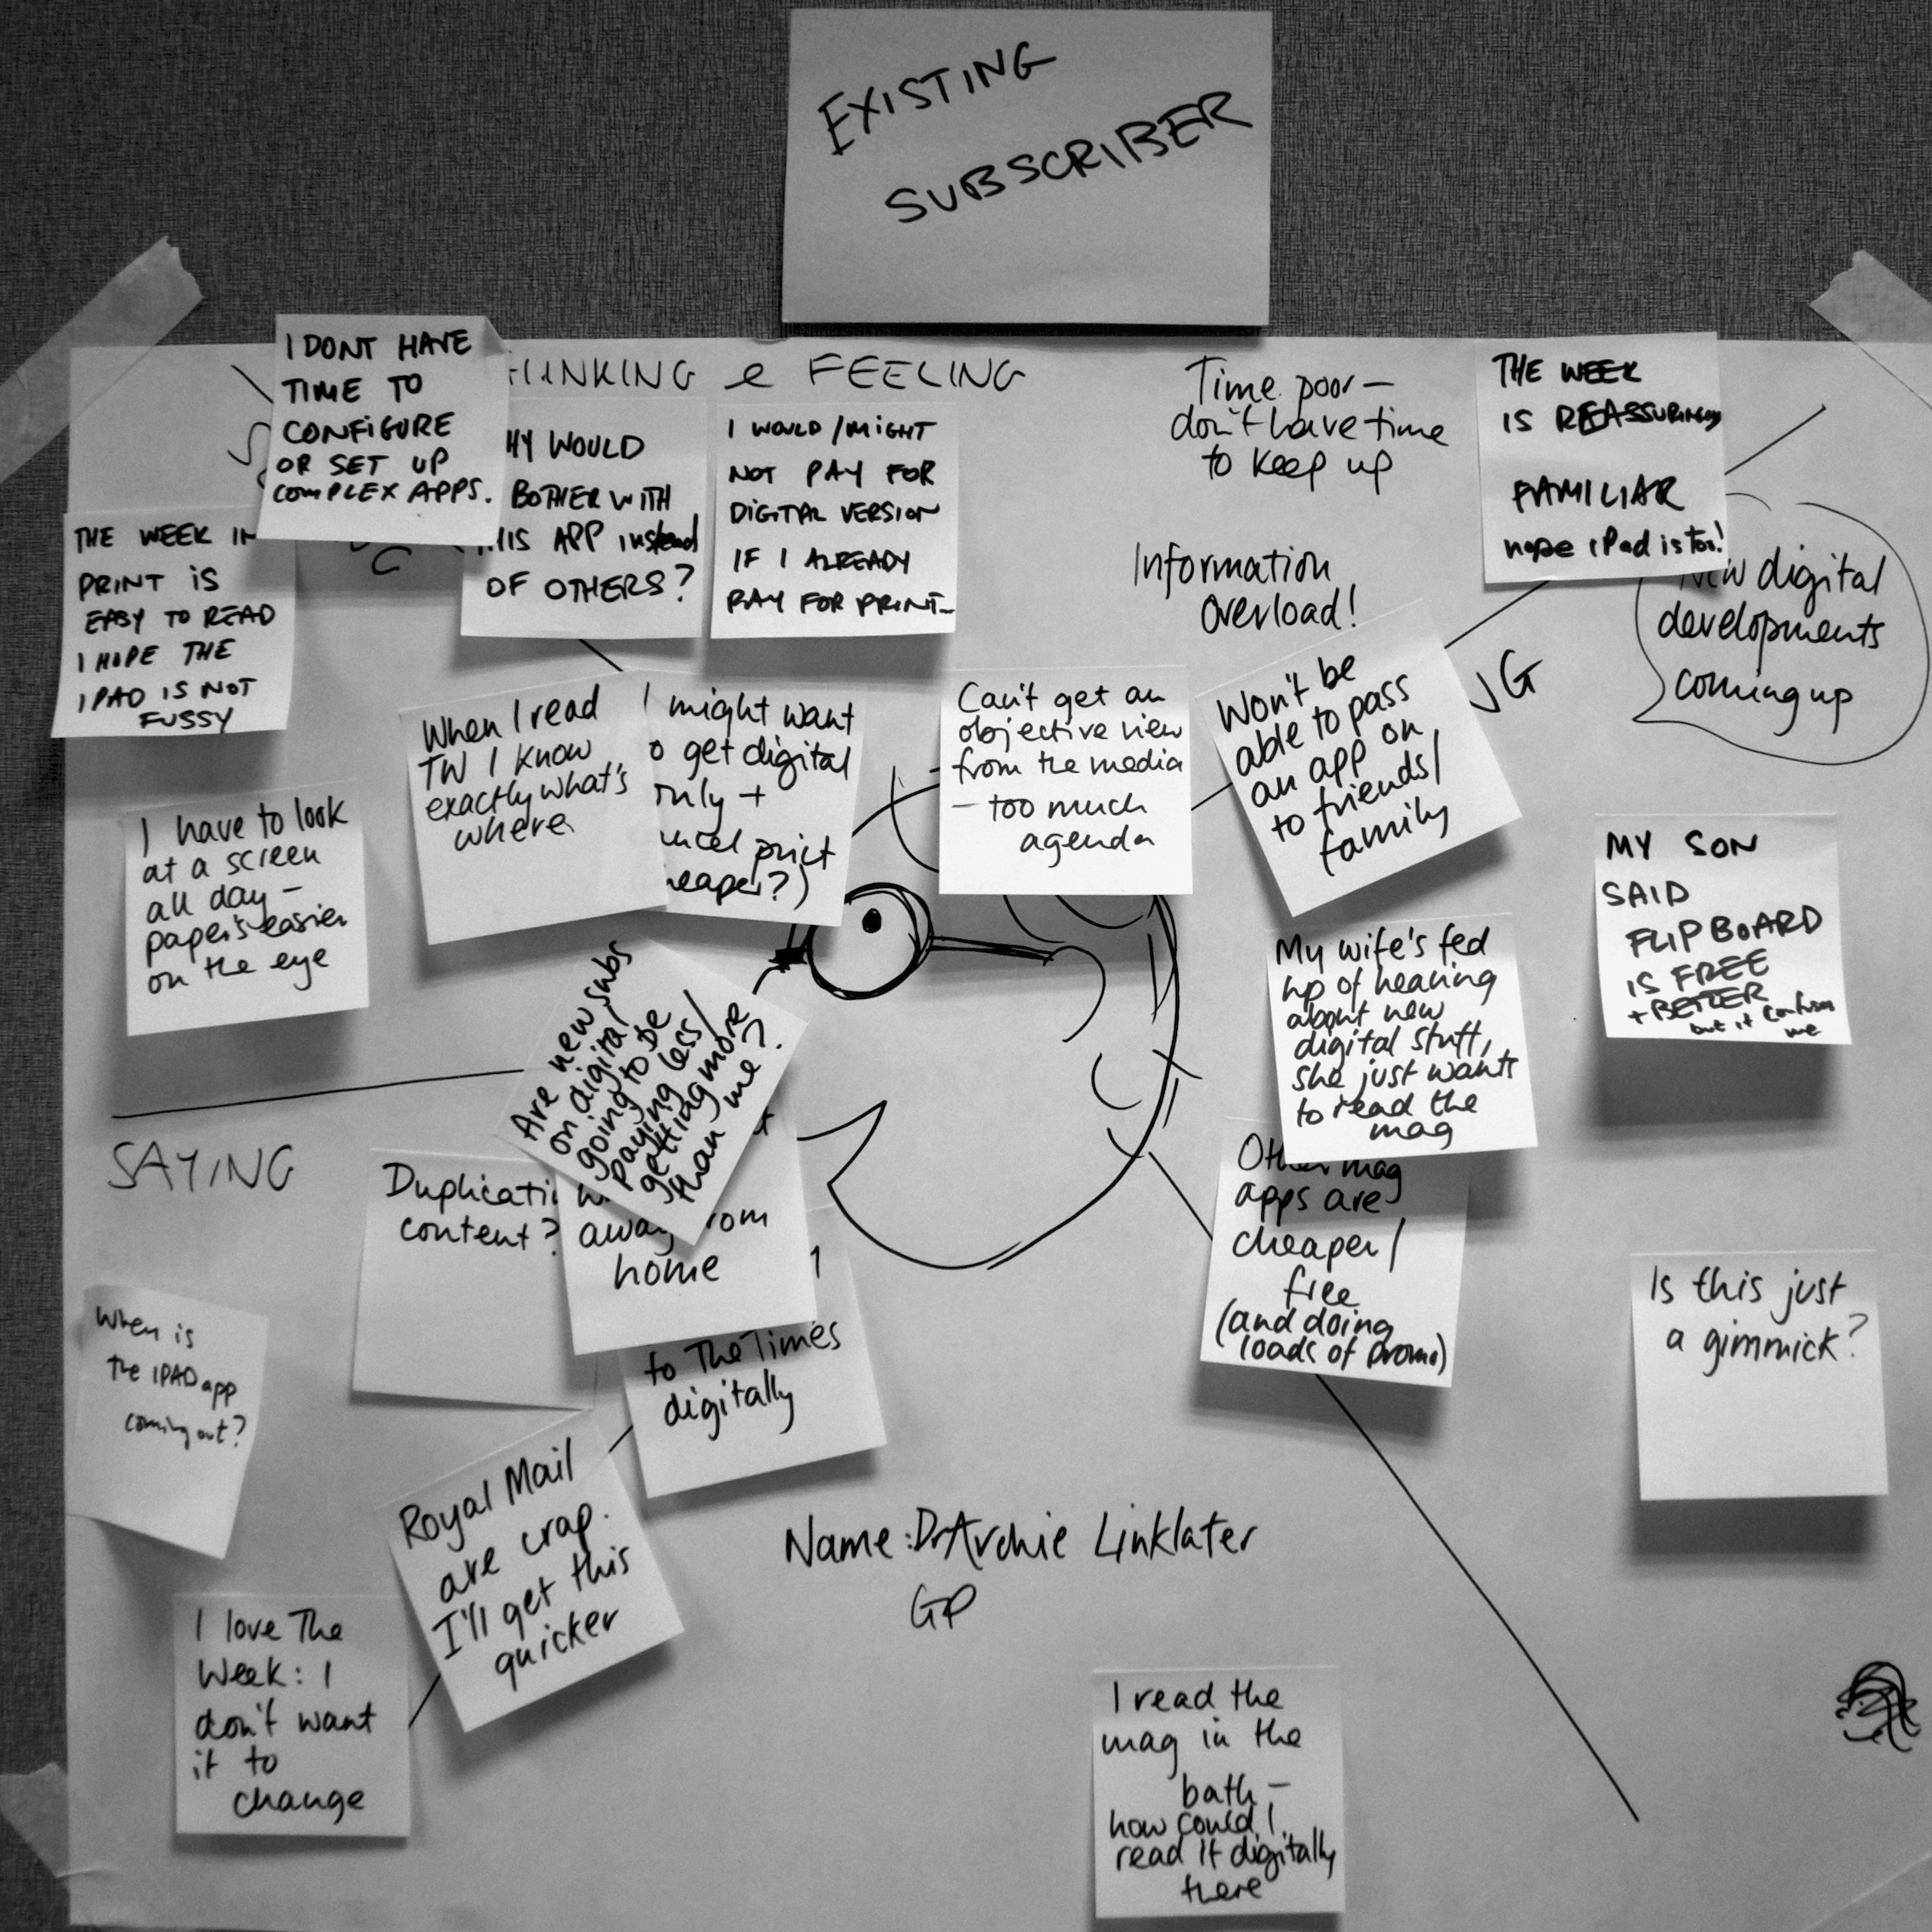 EXISTING
SUBSCRIBER
I DONT HAVE
TIME TO
CONFIGURE
OR SET UP
COMPLEX APPS.
THINKING & FEELING
HY WOULD
BOTHER WITH
HIS APP instead
OF OTHERS?
I WOULD/MIGHT
NOT PAY FOR
DIGITAL VERSION
IF I ALREADY
PAY FOR PRINT-
Time poor-
don't have time
to keep up
Information
Overload!
THE WEEK
IS REASSURINGLY
FAMILIAR
hope iPad is too!
New digital
developments
coming up
THE WEEK IN
PRINT IS
EASY TO READ
I HOPE THE
IPAD IS NOT
FUSSY
When I read
TW I know
exactly what's
where
I might want
o get digital
only +
ncel print
heaper?)
Can't get an
objective view
from the media
- too much
agenda
Won't be
able to pass
an app on
to friends/
family
NG
I have to look
at a screen
all day -
paper's easier
on the eye
MY SON
SAID
FLIPBOARD
IS FREE
+ BETTER
but it confuses
me
My wife's fed
up of hearing
about new
digital stuff,
she just wants
to read the
mag
Are new subs
on digital
going to be
paying less/
getting more
than me?
SAYING
Duplicati
content?
away from
home
to The Times
digitally
Other mag
apps are
cheaper/
free
(and doing
loads of promo)
Is this just
a gimmick?
When is
the IPAD app
coming out?
Royal Mail
are crap.
I'll get this
quicker
Name: Dr Archie Linklater
GP
I love The
Week: I
don't want
it to
change
I read the
mag in the
bath -
how could I
read it digitally
there